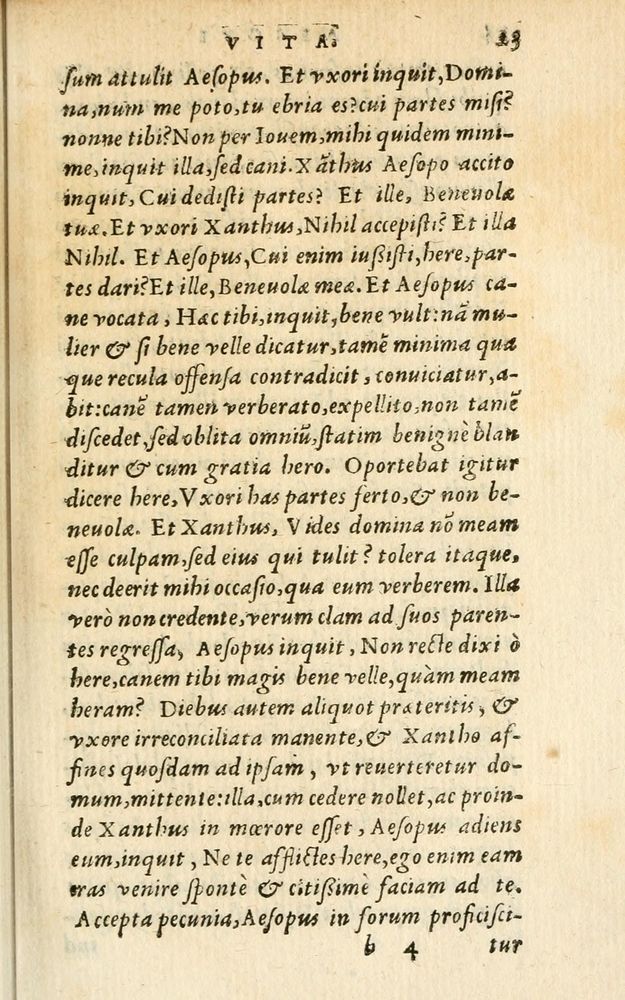 VITA. 23
ſum attulit Aeſopus. Et vxori inquit, Domi-
na, num me poto, tu ebria es? cui partes miſi?
nonne tibi? Non per Iouem, mihi quidem mini-
me, inquit illa, ſed cani. Xãthus Aeſopo accito
inquit, Cui dediſti partes? Et ille, Beneuolæ
tuæ. Et vxori Xanthus, Nihil accepiſti? Et illa
Nihil. Et Aeſopus, Cui enim iußiſti, here, par-
tes dari? Et ille, Beneuolæ meæ. Et Aeſopus ca-
ne vocata, Hæc tibi, inquit, bene vult: nã mu-
lier & ſi bene velle dicatur, tamẽ minima qua
que recula offenſa contradicit, conuiciatur, a-
bit: canẽ tamen verberato, expellito, non tamẽ
diſcedet, ſed oblita omniũ, ſtatim benignè blan
ditur & cum gratia hero. Oportebat igitur
dicere here, Vxori has partes ferto, & non be-
neuolæ. Et Xanthus, Vides domina nõ meam
eſſe culpam, ſed eius qui tulit? tolera itaque,
nec deerit mihi occaſio, qua eum verberem. Illa
verò non credente, verum clam ad ſuos paren-
tes regreſſa, Aeſopus inquit, Non recte dixi ò
here, canem tibi magis bene velle, quàm meam
heram? Diebus autem aliquot præteritis, &
vxore irreconciliata manente, & Xantho af-
fines quoſdam ad ipſam, vt reuerteretur do-
mum, mittente: illa, cum cedere nollet, ac proin-
de Xanthus in mœrore eſſet, Aeſopus adiens
eum, inquit, Ne te afflictes here, ego enim eam
cras venire ſpontè & citißimè faciam ad te.
Accepta pecunia, Aeſopus in forum proficiſci-
b 4 tur